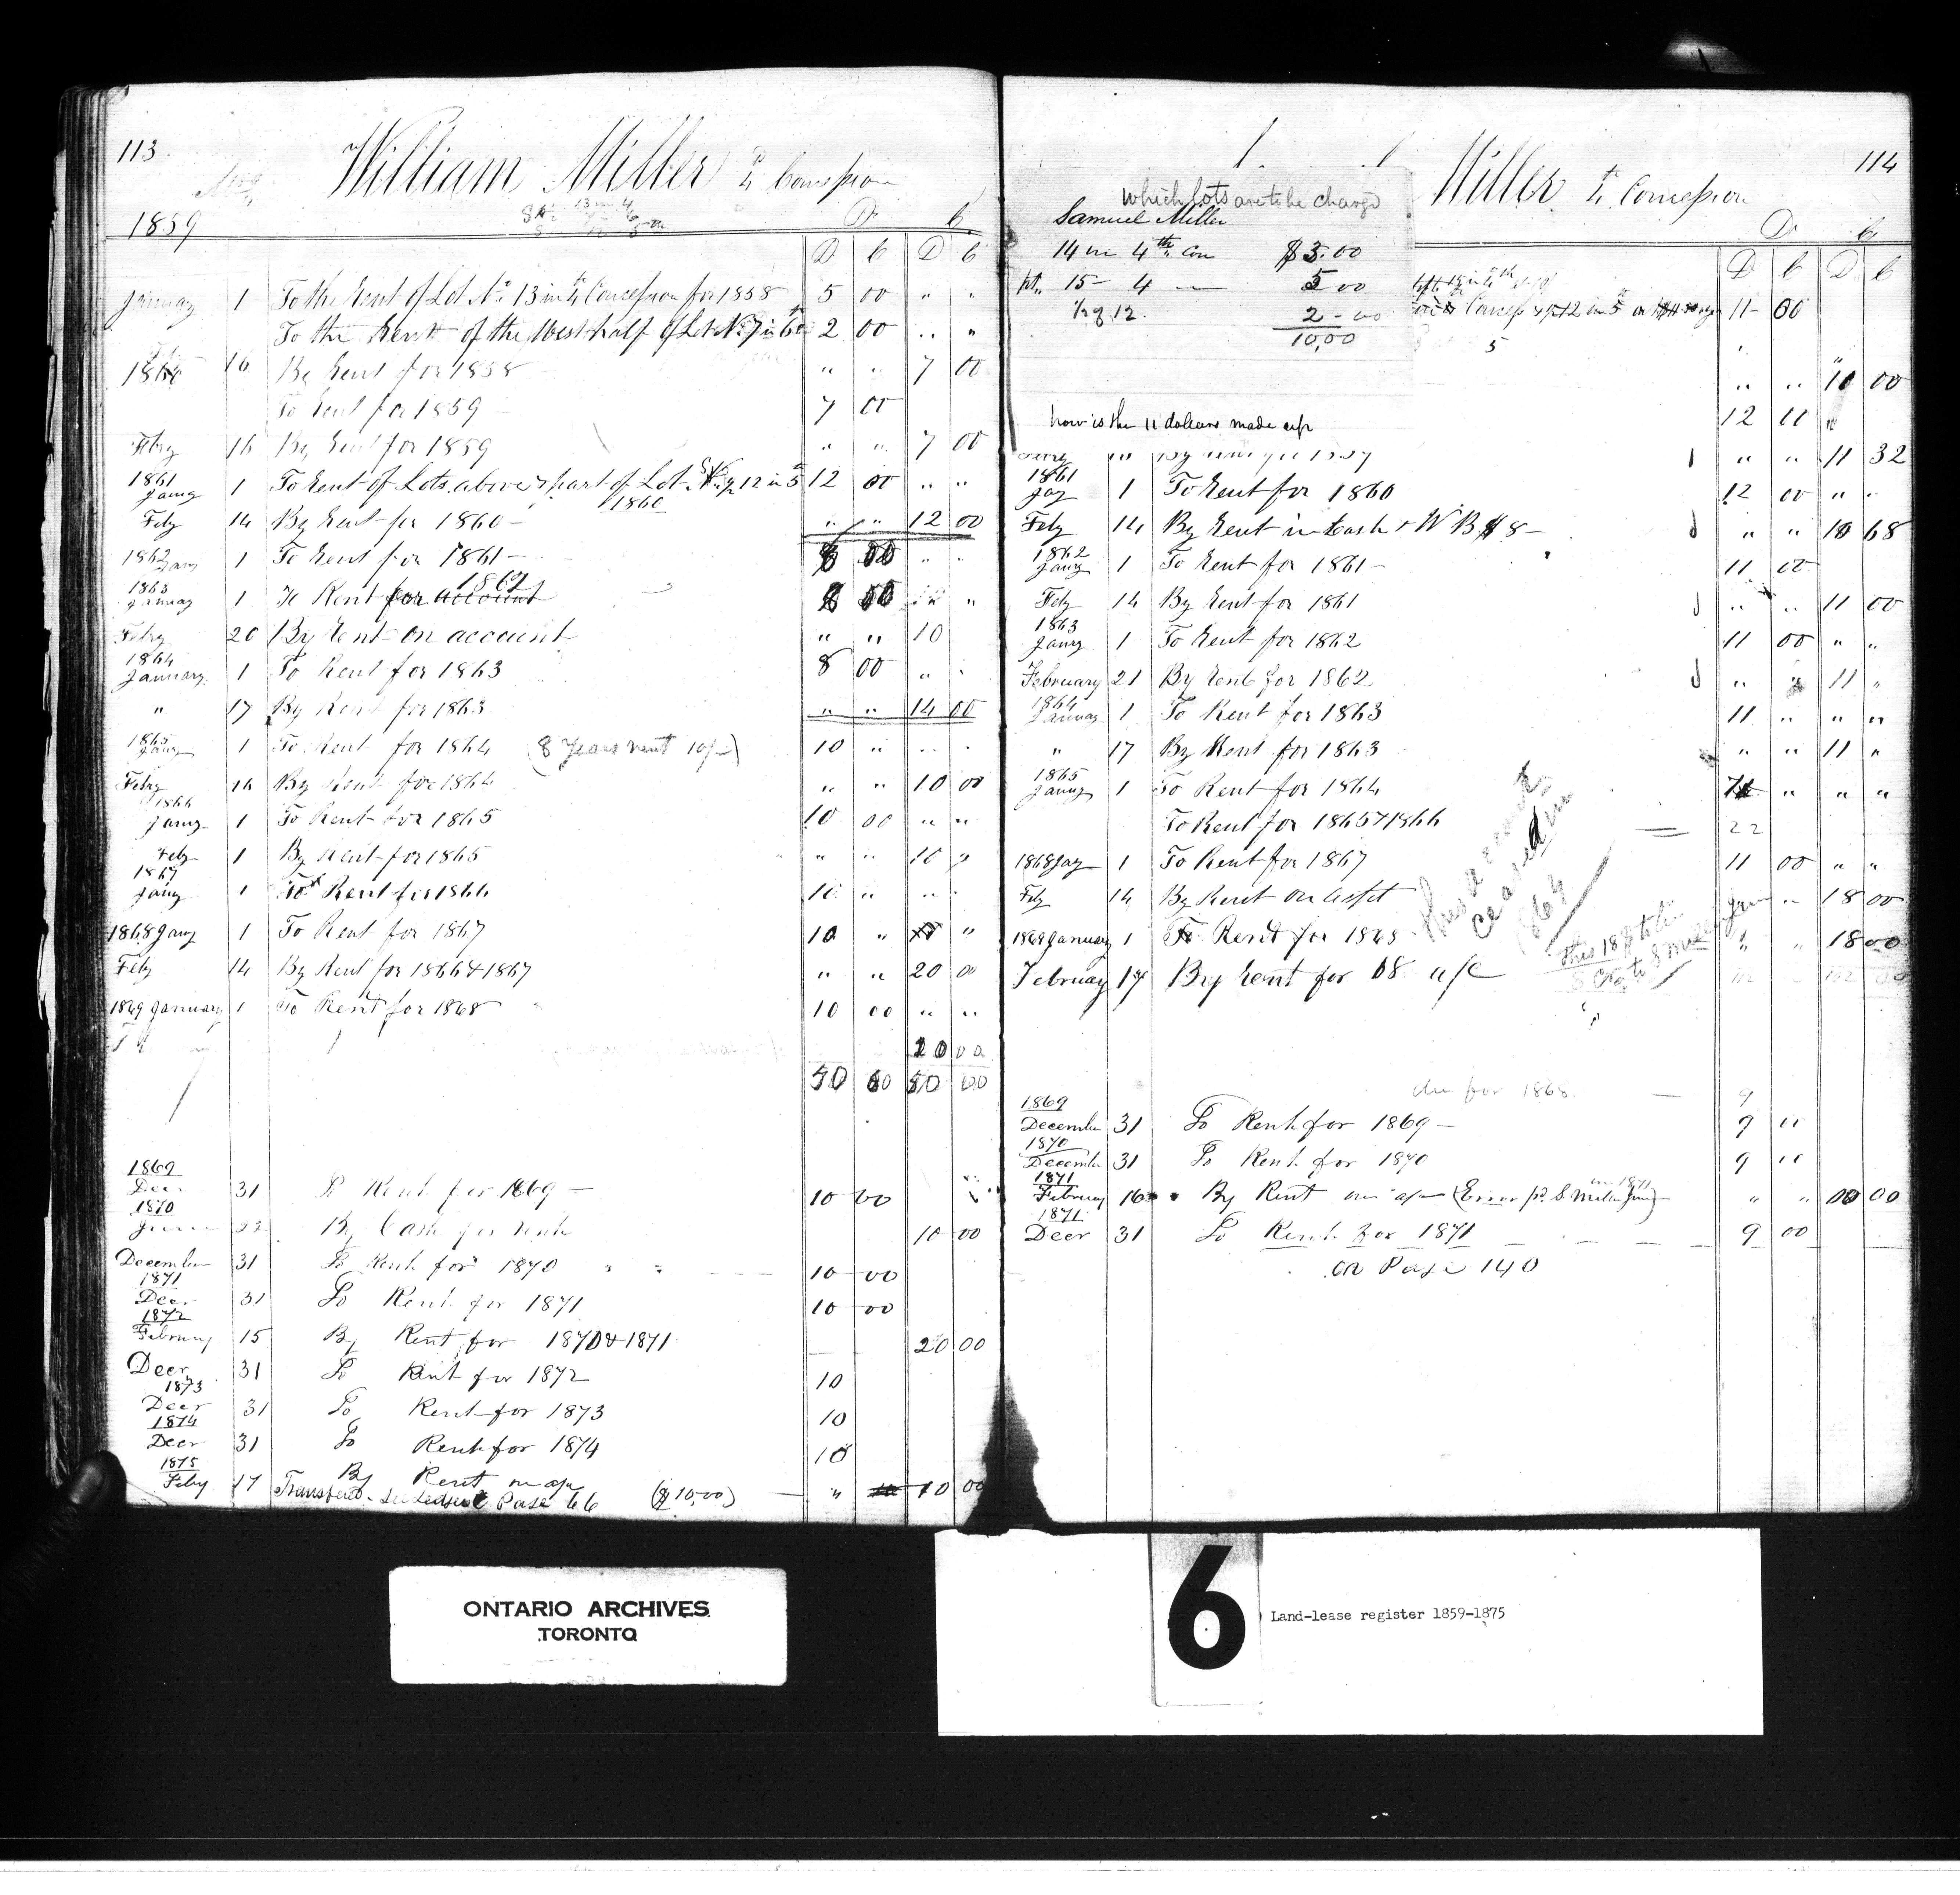 113
William Miller 4th Concession
1859
Dr Cr
D C D C
January 1 To the Rent of Lot No 13 in 4th Concession for 1858 5 00 " "
To the Rent of the West half of Lot No 7 in 6th 2 00 " "
1860 16 By Rent for 1858 " " 7 00
To Rent for 1859 7 00
Febry 16 By Rent for 1859 " " 7 00
1861
Jany 1 To Rent of Lots above & part of Lot No 12 in 5th 12 00 " "
1860
Feby 14 By Rent for 1860 " " 12 00
1862
Jany 1 To Rent for 1861 8 00 " "
1863
January 1 To Rent for account 1862 8 00 " "
Febry 20 By Rent on account " " 10
1864
January 1 To Rent for 1863 8 00 " "
" 17 By Rent for 1863 " " 14 00
1865
Jany 1 To Rent for 1864 (8 years rent 10/-) 10 " " "
Febry 16 By Rent for 1864 " " 10 00
1866
Jany 1 To Rent for 1865 10 00 " "
Feby 1 By Rent for 1865 " " 10 "
1867
Jany 1 To Rent for 1866 10 " " "
1868 Jany 1 To Rent for 1867 10 " "
Feby 14 By Rent for 1866 & 1867 " " 20 00
1869 January 1 To Rent for 1868 10 00 " "
20 00
50 00 50 00
1869
Dec 31 To Rent for 1869 10 00
1870
June 22 By Cash for rent 10 00
December 31 To Rent for 1870 10 00
1871
Decr 31 To Rent for 1871 10 00
1872
February 15 By Rent for 1870 & 1871 20 00
Decr 31 To Rent for 1872 10
1873
Decr 31 To Rent for 1873 10
1874
Decr 31 To Rent for 1874 10
1875
Feby 17 By Rent on a/c " 10 00
Transfered - See Ledger C Page 66 ($10.00)
114
Miller 4th Concession
Dr Cr
D C D C
which lots are to be charge
Samuel Miller
14 in 4th Con $3.00
pt. 15 - 4 - 5 00
1/2 of 12. 2 - 00
10,00
how is the 11 dollars made up
11 - 00
5
" " 10 00
12 11 "
" " 11 32
1861
Jay 1 To Rent for 1860 12 00 " "
Feby 14 By Rent in Cash & W B $8 - " " 10 68
1862
Jany 1 To Rent for 1861 - 11 00
Feby 14 By Rent for 1861 " " 11 00
1863
Jany 1 To Rent for 1862 11 00 " "
February 21 By Rent for 1862 " " 11 "
1864
January 1 To Rent for 1863 11 " " "
" 17 By Rent for 1863 " " 11 "
1865
Jany 1 To Rent for 1864 " " "
To Rent for 1865 & 1866 22
1868 Jay 1 To Rent for 1867 11 00 " "
Feby 14 By Rent on acct " 18 00
1869 January 1 To Rent for 1868 " " 18 00
February 17 By Rent for 68 a/c
due for 1868 9
1869
December 31 To Rent for 1869 - 9 "
1870
December 31 To Rent for 1870 9 "
1871
February 16 By Rent on a/c (Error pd. S Miller Jun) in 1871 " " 00 00
1871
Decr 31 To Rent for 1871 9 00
on Page 140
ONTARIO ARCHIVES
TORONTO
6
Land-lease register 1859-1875